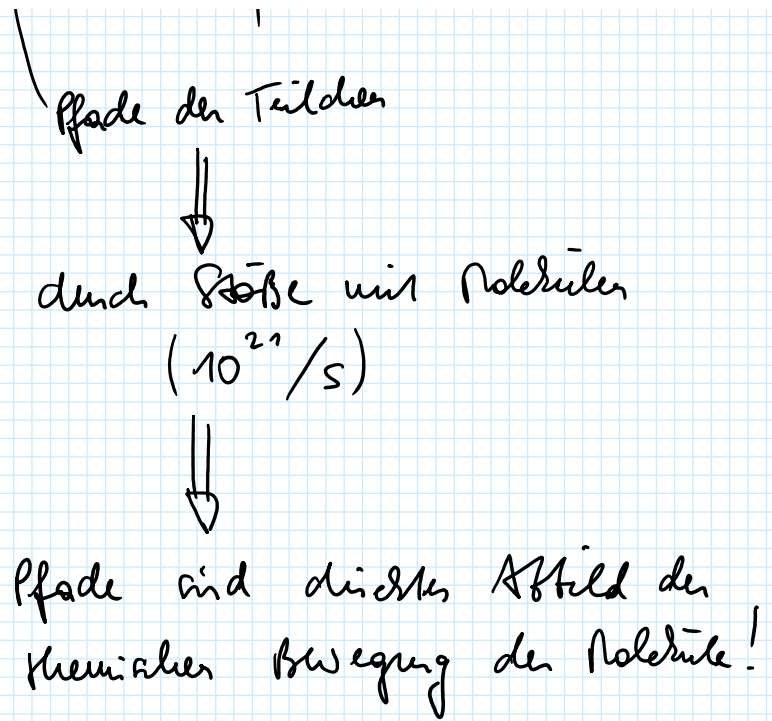 Pfade der Teilchen
durch Stöße mit Molekülen
(10²¹/s)
Pfade sind direktes Abbild der
thermischen Bewegung der Moleküle!